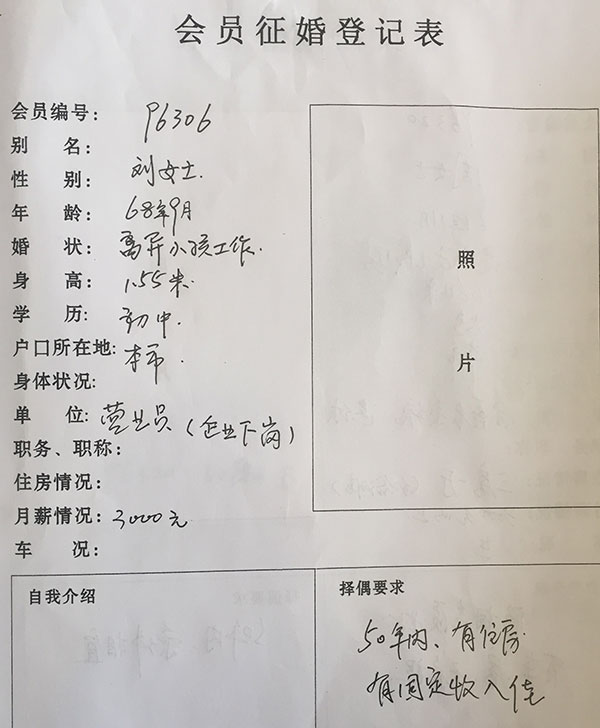 会员征婚登记表
会员编号: 96306
别 名:
性 别: 刘女士.
年 龄: 68年9月
婚 状: 离异小孩工作.
身 高: 1.55米.
学 历: 初中.
户口所在地: 本市.
身体状况:
单 位: 营业员(企业下岗)
职务、职称:
住房情况:
月薪情况: 3000元
车 况:
照
片
自我介绍
择偶要求
50年内、有住房
有固定收入佳